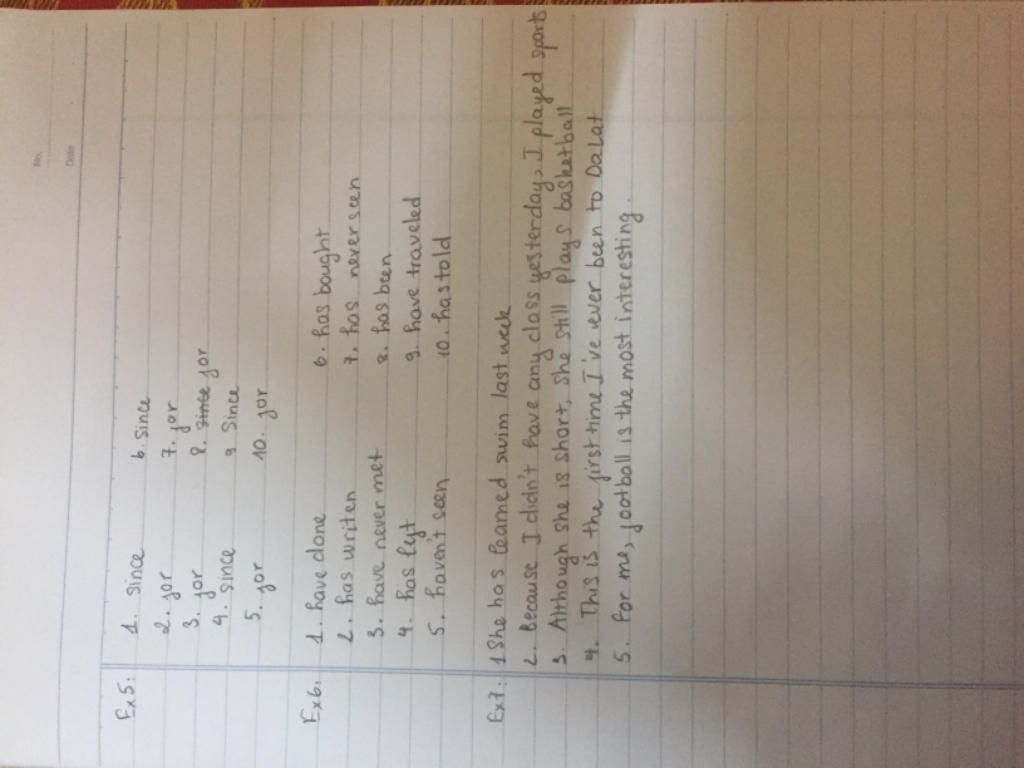 No.
Date
Ex5: 1. since 6. since
2. for 7. for
3. for 8. since for
4. since 9. since
5. for 10. for
Ex6. 1. have done 6. has bought
2. has writen 7. has never seen
3. have never met 8. has been
4. has left 9. have traveled
5. haven't seen 10. has told
Ex7. 1 She has learned swim last week
2. Because I didn't have any class yesterday, I played sports
3. Although she is short, she still plays basketball
4. This is the first time I've ever been to DaLat
5. For me, football is the most interesting.